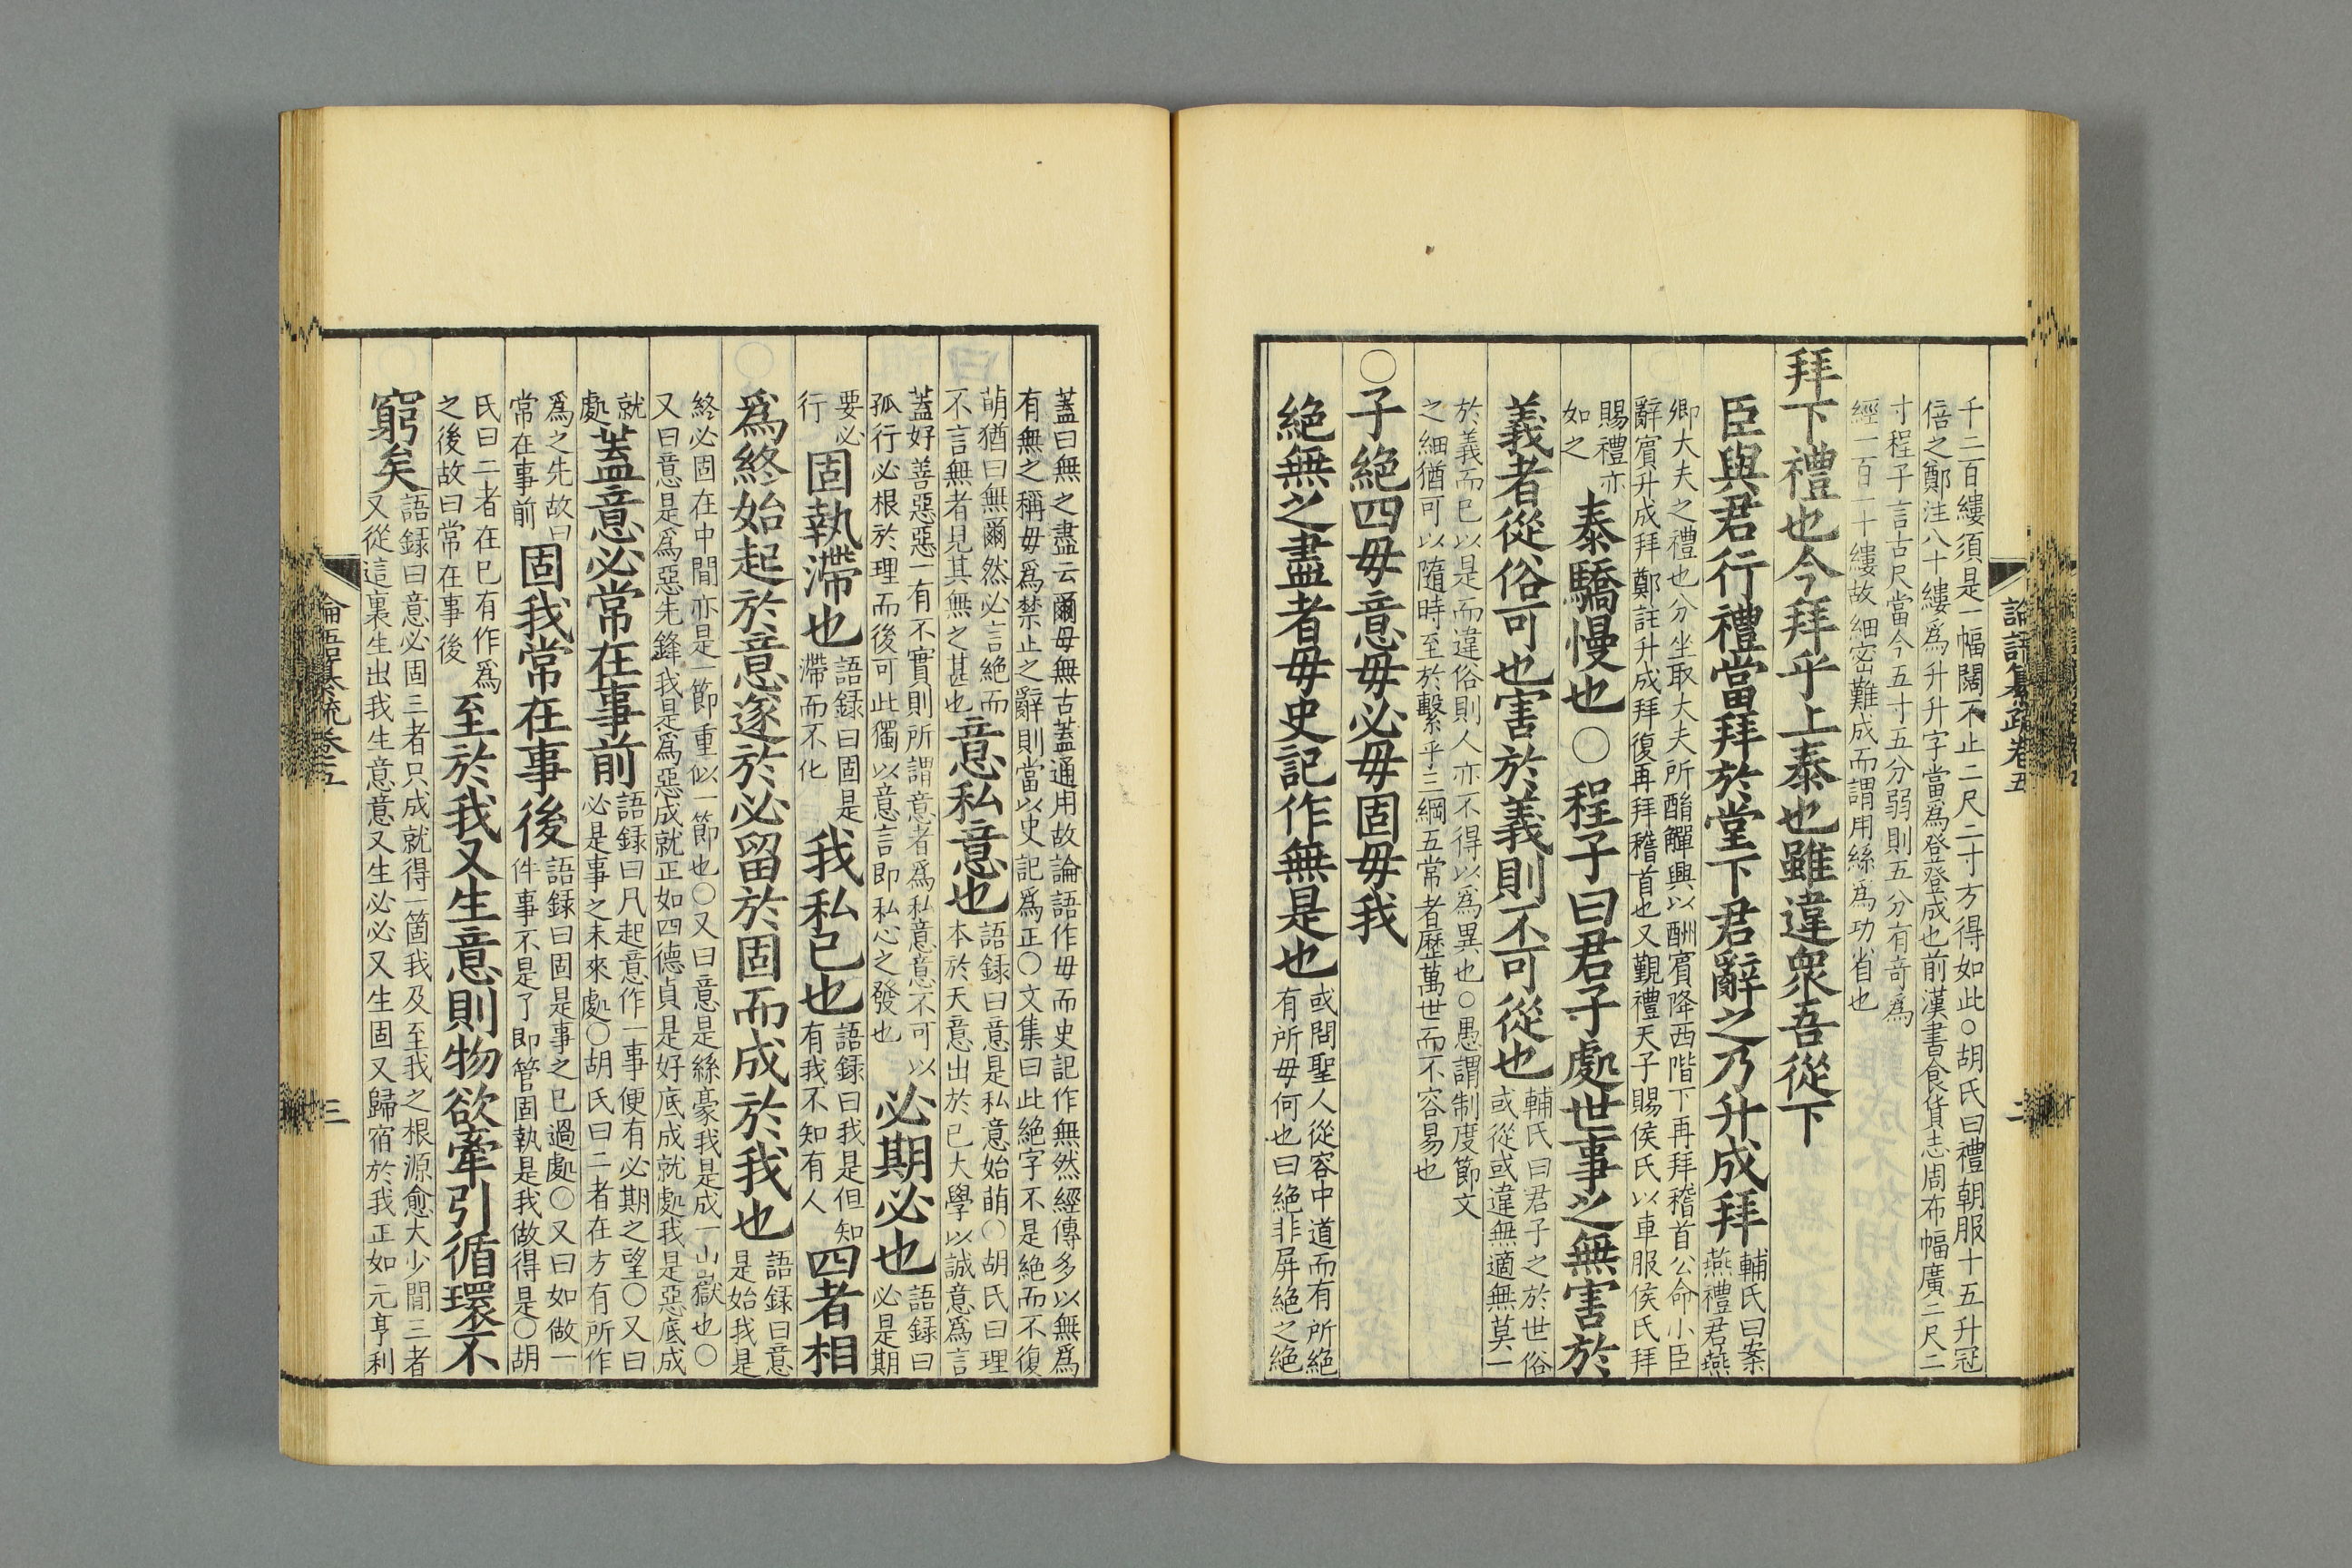 千二百縷須是一幅闊不止二尺二寸方得如此○胡氏曰禮朝服十五升冠
倍之鄭注八十縷為升升字當為登登成也前漢書食貨志周布幅廣二尺二
寸程子言古尺當今五寸五分弱則五分有奇為
經一百二十縷故細密難成而謂用絲為功省也
拜下禮也今拜乎上泰也雖違衆吾從下
臣與君行禮當拜於堂下君辭之乃升成拜
輔氏曰案
燕禮君燕
卿大夫之禮也分坐取大夫所酳觶興以酬賓降西階下再拜稽首公命小臣
辭賓升成拜鄭註升成拜復再拜稽首也又覲禮天子賜侯氏以車服侯氏拜
賜禮亦
如之
泰驕慢也○程子曰君子處世事之無害於
義者從俗可也害於義則不可從也
輔氏曰君子之於世俗
或從或違無適無莫一
於義而已以是而違俗則人亦不得以為異也○愚謂制度節文
之細猶可以隨時至於繫乎三綱五常者歷萬世而不容易也
○子絶四毋意毋必毋固毋我
絶無之盡者毋史記作無是也
或問聖人從容中道而有所絶
有所毋何也曰絶非屏絶之絶
論語纂疏卷五
二
蓋曰無之盡云爾毋無古蓋通用故論語作毋而史記作無然經傳多以無為
有無之稱毋為禁止之辭則當以史記為正○文集曰此絶字不是絶而不復
萌猶曰無爾然必言絶而
不言無者見其無之甚也
意私意也
語録曰意是私意始萌○胡氏曰理
本於天意出於已大學以誠意為言
蓋好善惡惡一有不實則所謂意者為私意意不可以
孤行必根於理而後可此獨以意言即私心之發也
必期必也
語録曰
必是期
要必
行
固執滯也
語録曰固是
滯而不化
我私已也
語録曰我是但知
有我不知有人
四者相
為終始起於意遂於必留於固而成於我也
語録曰意
是始我是
終必固在中閒亦是一節重似一節也○又曰意是絲豪我是成一山嶽也○
又曰意是為惡先鋒我是為惡成就正如四德貞是好底成就處我是惡底成
就
處
蓋意必常在事前
語録曰凡起意作一事便有必期之望○又曰
必是事之未來處○胡氏曰二者在方有所作
為之先故曰
常在事前
固我常在事後
語録曰固是事之已過處○又曰如做一
件事不是了即管固執是我做得是○胡
氏曰二者在已有作為
之後故曰常在事後
至於我又生意則物欲牽引循環不
窮矣
語録曰意必固三者只成就得一箇我及至我之根源愈大少閒三者
又從這裏生出我生意意又生必必又生固又歸宿於我正如元亨利
論語纂疏卷五
三